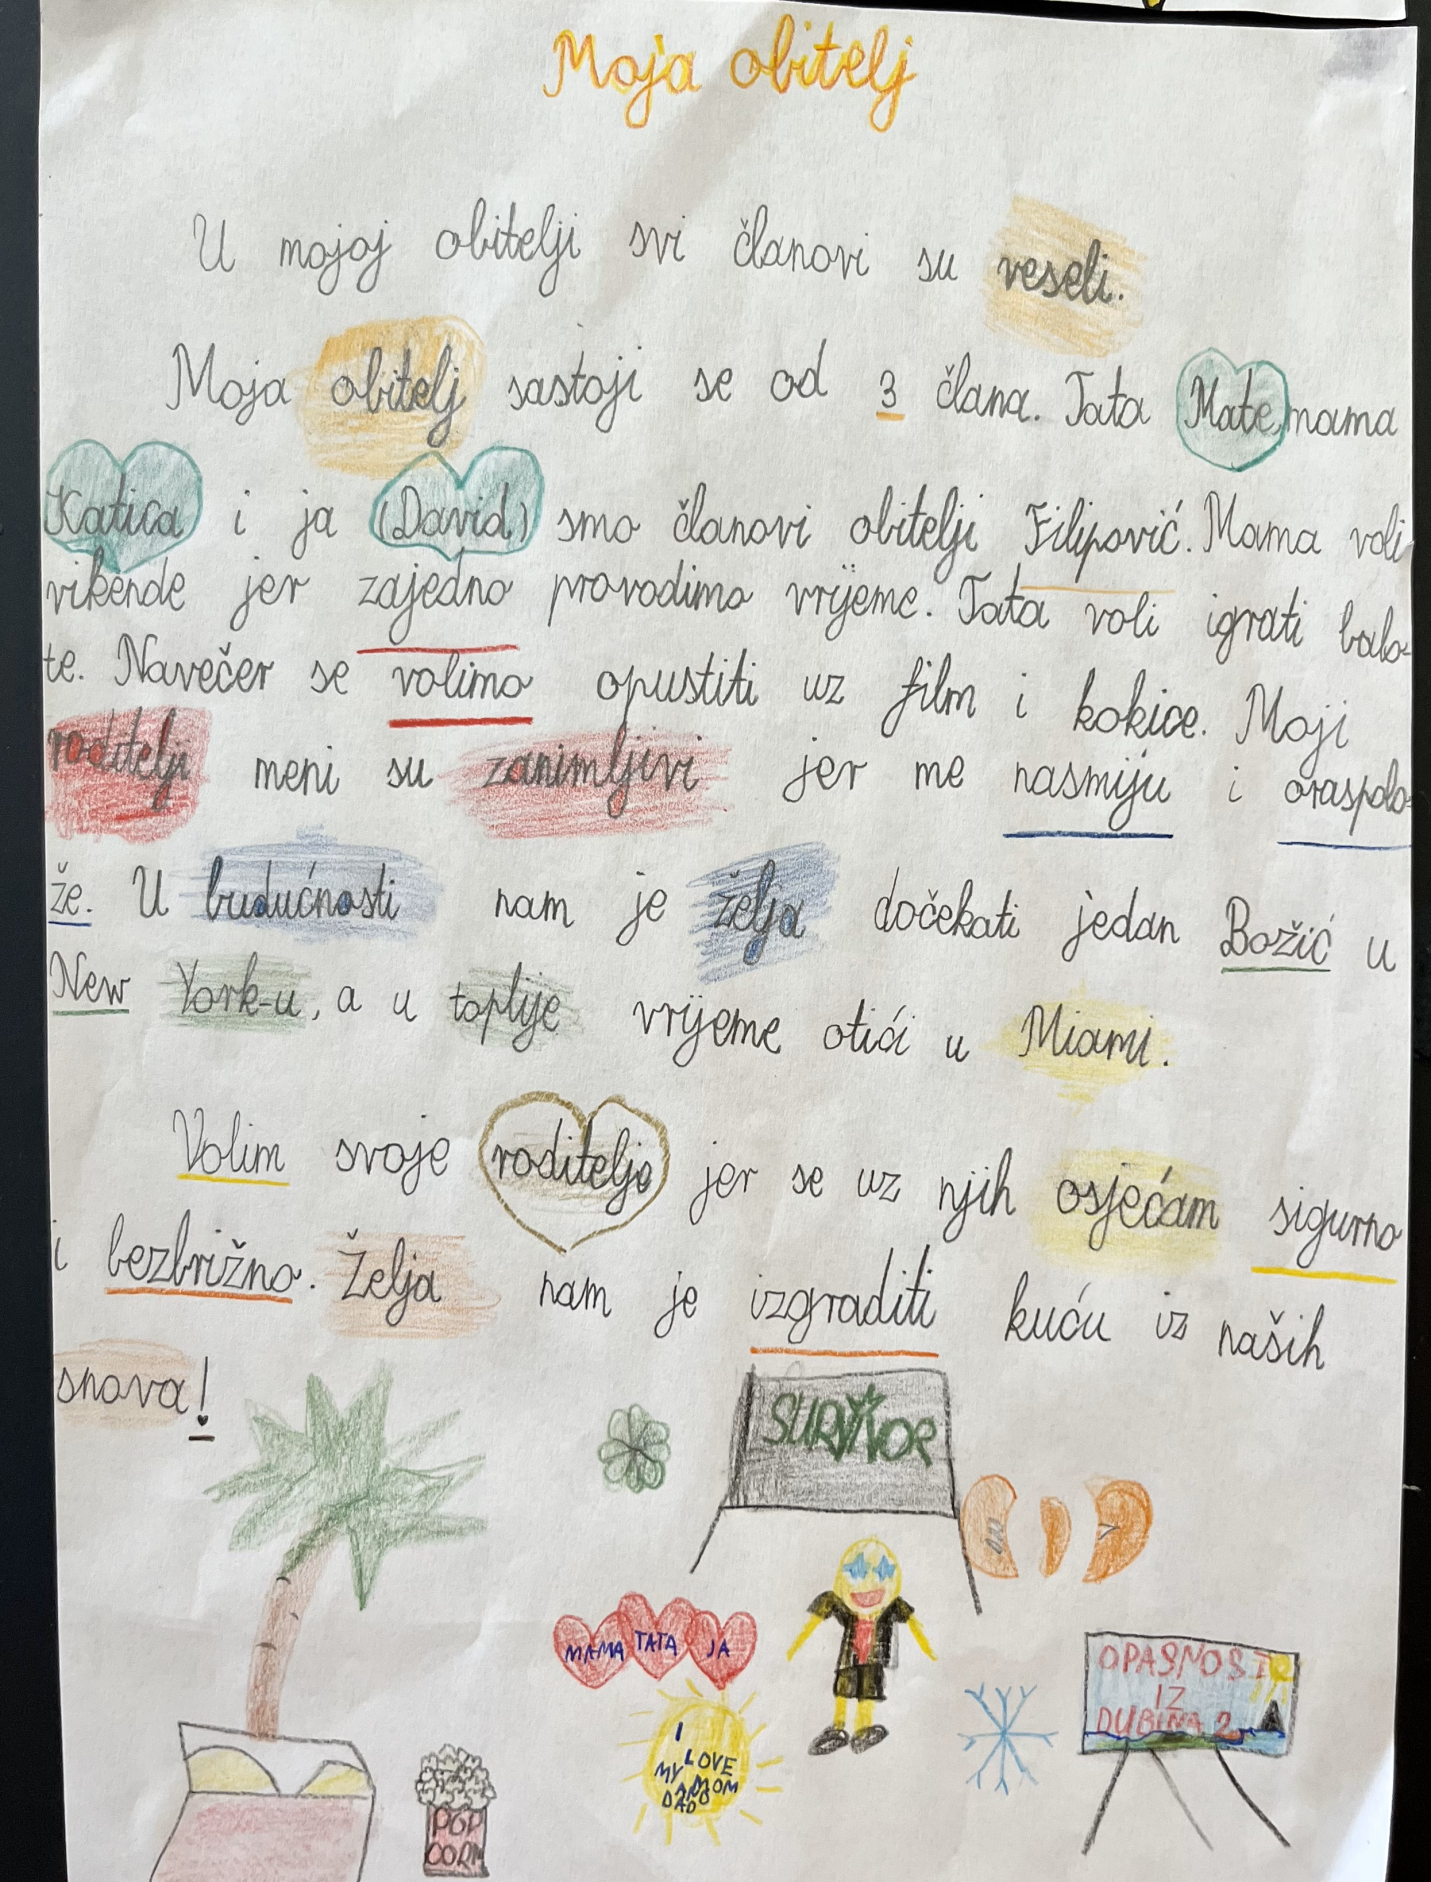 Moja obitelj
U mojoj obitelji svi članovi su veseli.
Moja obitelj sastoji se od 3 člana. Tata Mate, mama
Katica i ja (David) smo članovi obitelji Filipović. Mama voli
vikende jer zajedno provodimo vrijeme. Tata voli igrati balo-
te. Navečer se volimo opustiti uz film i kokice. Moji
roditelji meni su zanimljivi jer me nasmiju i oraspolo-
že. U budućnosti nam je želja dočekati jedan Božić u
New York-u, a u toplije vrijeme otići u Miami.
Volim svoje roditelje jer se uz njih osjećam sigurno
i bezbrižno. Želja nam je izgraditi kuću iz naših
snova!
SURVIVOR
MAMA TATA JA
OPASNOST
IZ
DUBINA 2
I
LOVE
MY MOM
AND
DAD
POP
CORN